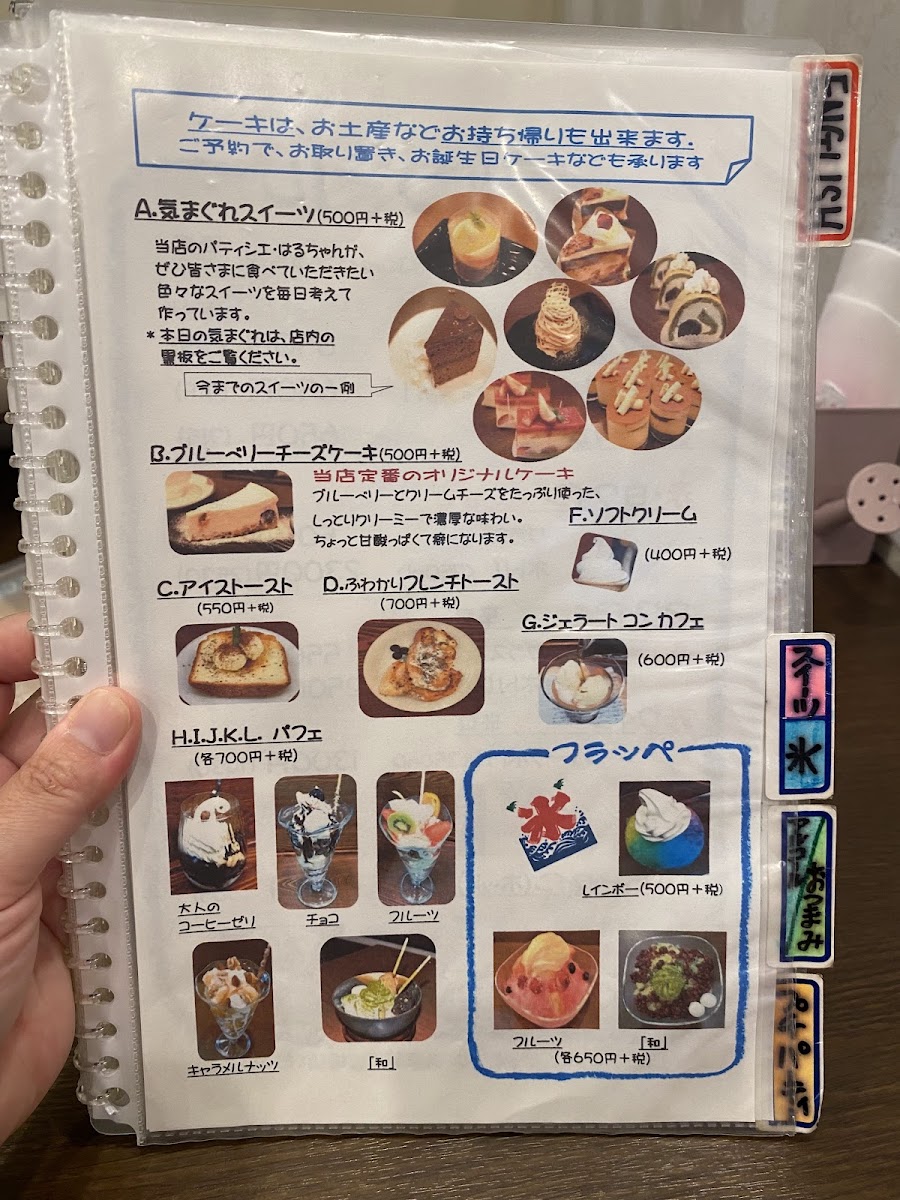 ケーキは、お土産などお持ち帰りも出来ます.
ご予約で、お取り置き、お誕生日ケーキなども承ります
A.気まぐれスイーツ(500円+税)
当店のパティシエ・はるちゃんが、
ぜひ皆さまに食べていただきたい
色々なスイーツを毎日考えて
作っています。
*本日の気まぐれは、店内の
黒板をご覧ください。
今までのスイーツの一例
B.ブルーベリーチーズケーキ(500円+税)
当店定番のオリジナルケーキ
ブルーベリーとクリームチーズをたっぷり使った、
しっとりクリーミーで濃厚な味わい。
ちょっと甘酸っぱくて癖になります。
F.ソフトクリーム
(400円+税)
C.アイストースト
(550円+税)
D.ふわかりフレンチトースト
(700円+税)
G.ジェラート コン カフェ
(600円+税)
H.I.J.K.L. パフェ
(各700円+税)
大人の
コーヒーゼリ
チョコ
フルーツ
キャラメルナッツ
「和」
フラッペ
氷
レインボー(500円+税)
フルーツ
「和」
(各650円+税)
スイーツ
氷
アルコール
おつまみ